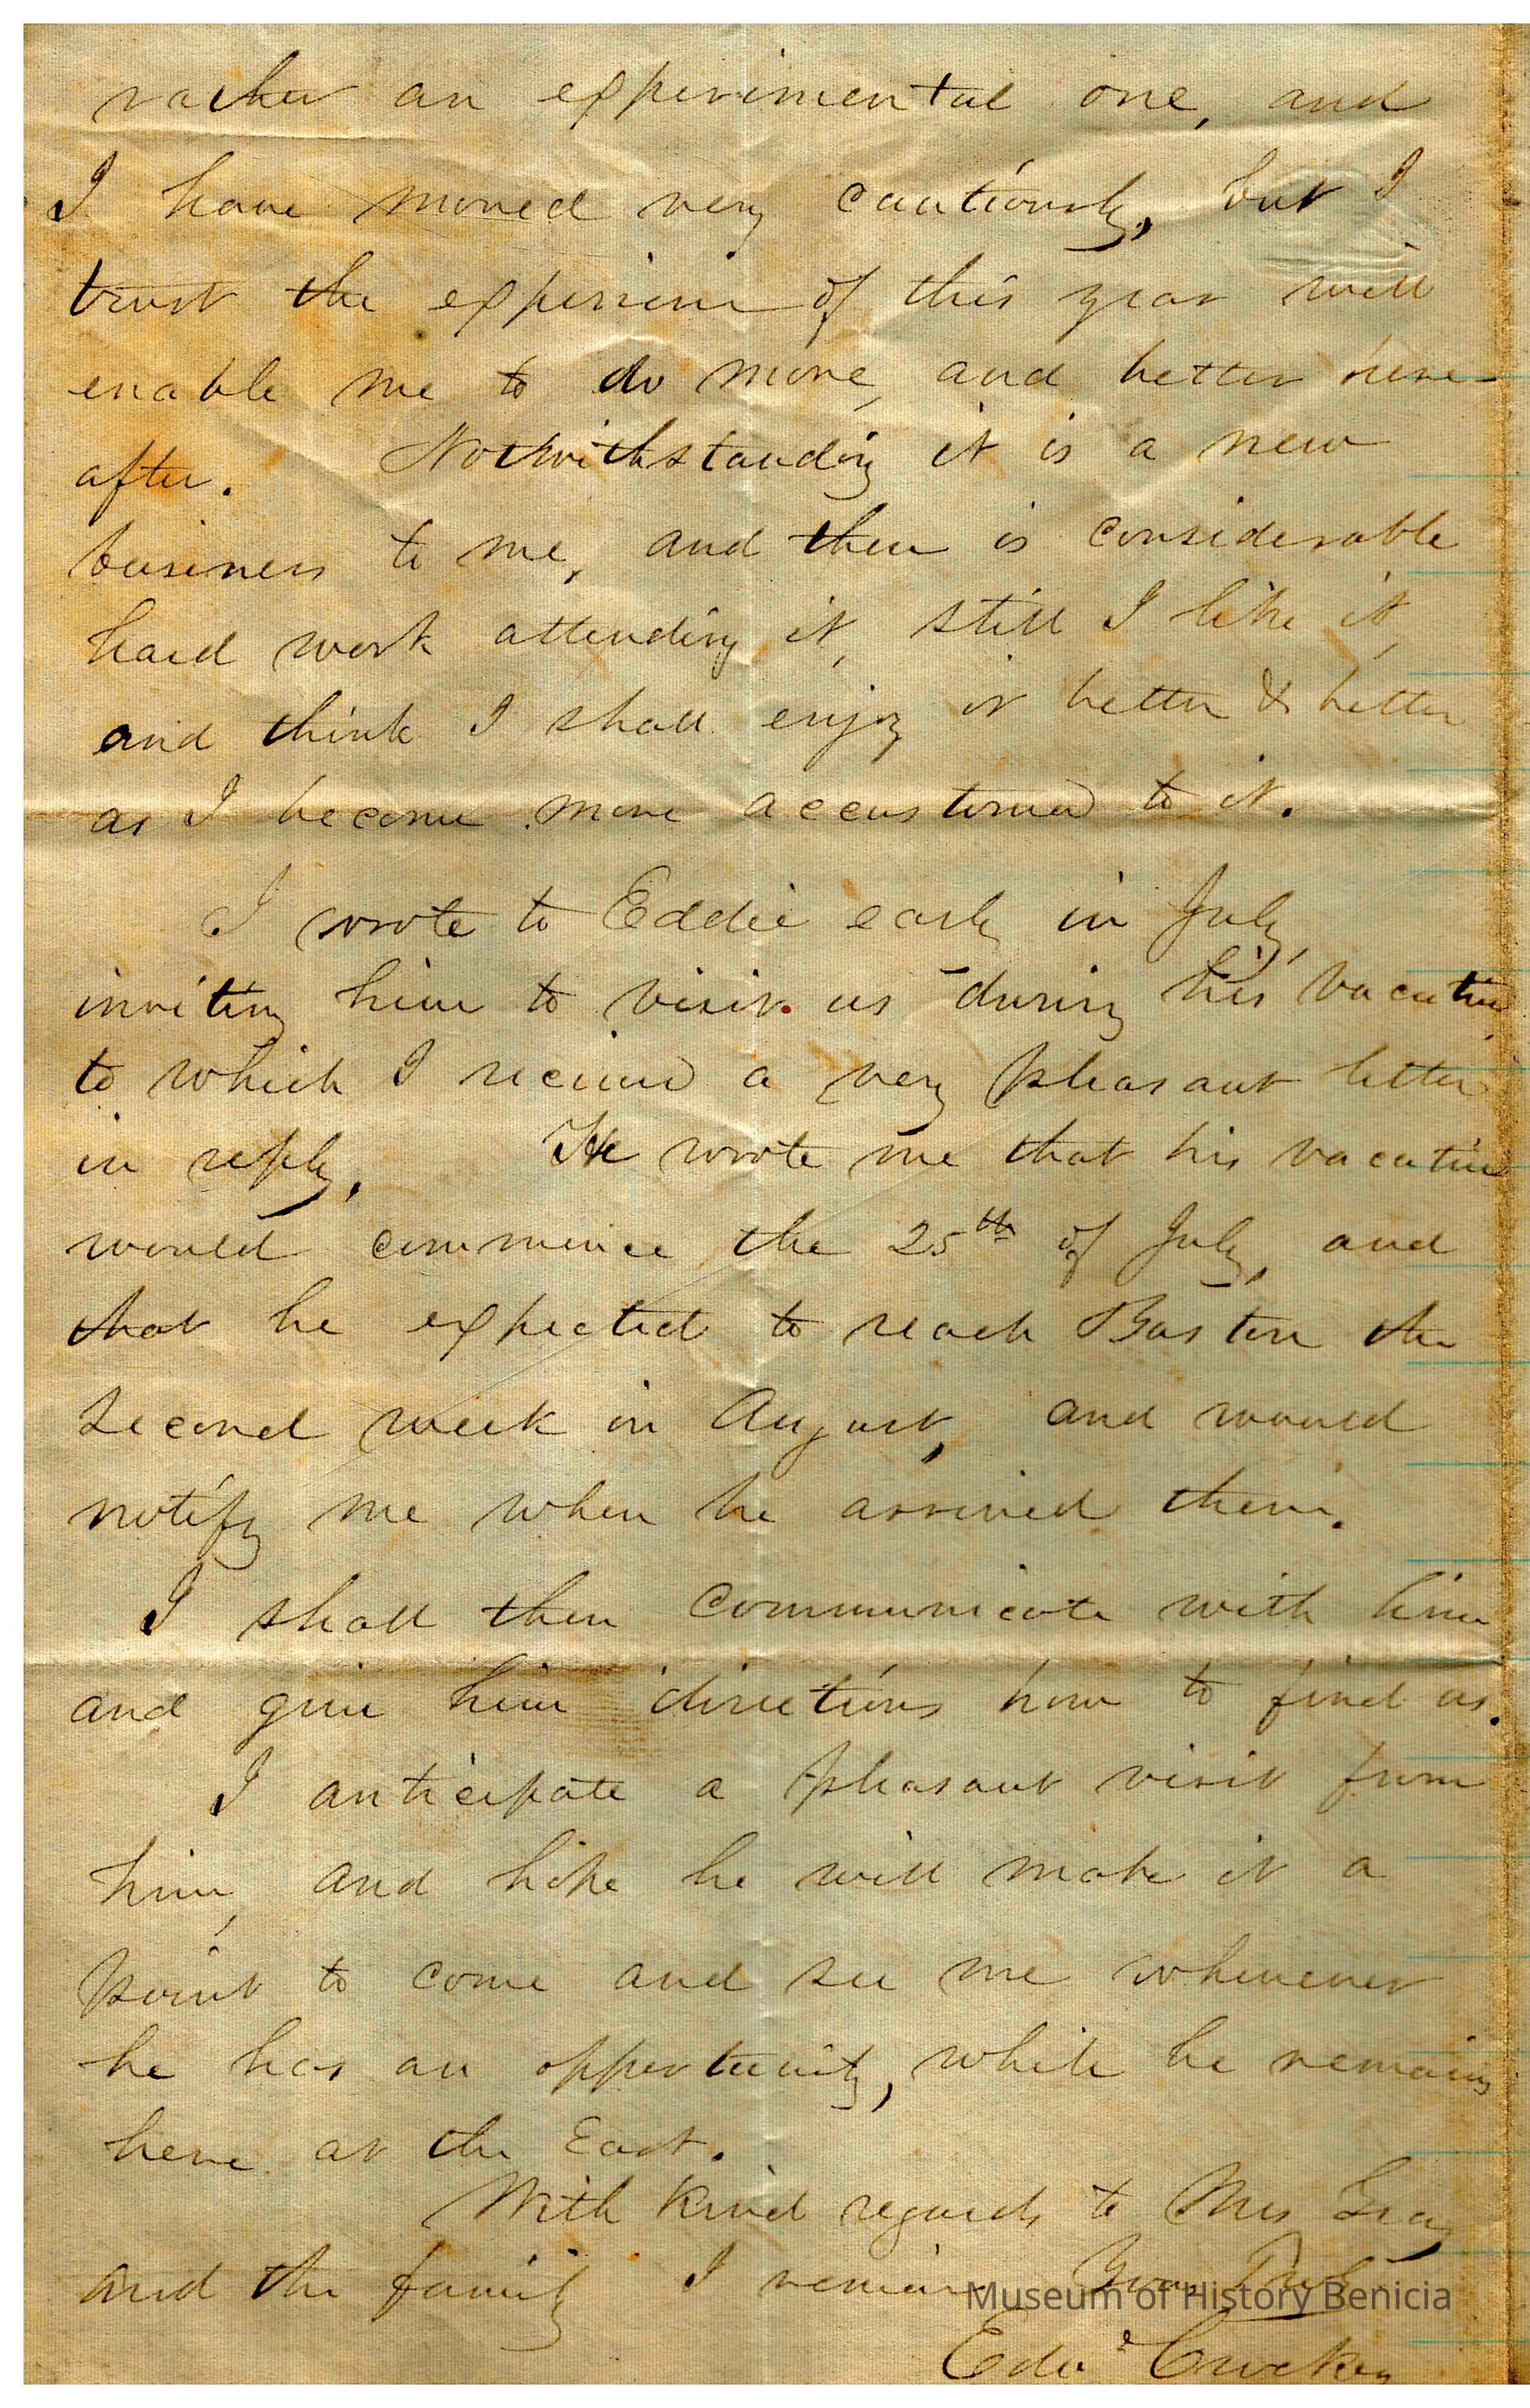 rather an experimental one, and
I have moved very cautiously, but I
trust the experience of this year will
enable me to do more, and better here-
after. Notwithstanding it is a new
business to me, and there is considerable
hard work attending it, still I like it,
and think I shall enjoy it better & better
as I become more accustomed to it.
I wrote to Eddie early in July,
inviting him to visit us during his vacation
to which I received a very pleasant letter
in reply. He wrote me that his vacation
would commence the 25th of July, and
that he expected to reach Boston the
second week in August, and would
notify me when he arrived there.
I shall then communicate with him
and give him directions how to find us.
I anticipate a pleasant visit from
him, and hope he will make it a
point to come and see me whenever
he has an opportunity, while he remains
here at the East.
With kind regards to Mrs Gray
and the family I remain Yours Truly
Museum of History Benicia
Edwd Crocker